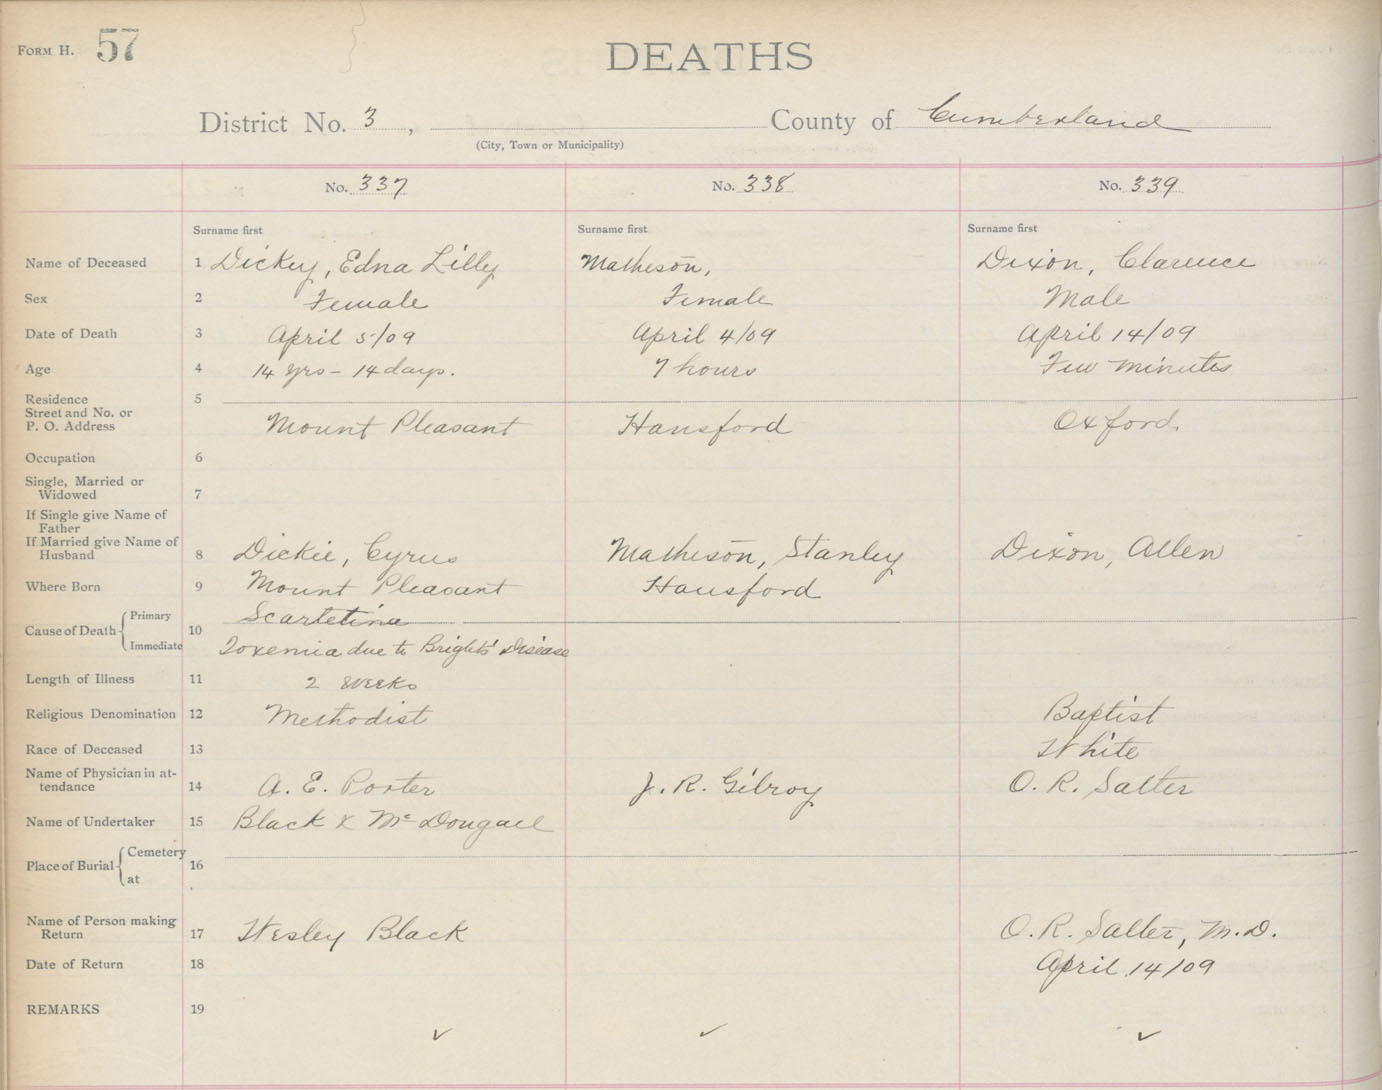 FORM H. 57
DEATHS
District No. 3, County of Cumberland
(City, Town or Municipality)
No. 337 No. 338 No. 339
Surname first Surname first Surname first
Name of Deceased 1 Dickey, Edna Lilly Matheson, Dixon, Clarence
Sex 2 Female Female Male
Date of Death 3 April 5/09 April 4/09 April 14/09
Age 4 14 yrs - 14 days. 7 hours Few minutes
Residence 5
Street and No. or
P. O. Address Mount Pleasant Hansford Oxford.
Occupation 6
Single, Married or
Widowed 7
If Single give Name of
Father
If Married give Name of
Husband 8 Dickie, Cyrus Matheson, Stanley Dixon, Allen
Where Born 9 Mount Pleasant Hansford
Cause of Death Primary 10 Scarletina
Immediate Toxemia due to Bright's Disease
Length of Illness 11 2 weeks
Religious Denomination 12 Methodist Baptist
Race of Deceased 13 White
Name of Physician in at-
tendance 14 A. E. Porter J. R. Gilroy O. R. Salter
Name of Undertaker 15 Black & McDougall
Place of Burial Cemetery 16
at
Name of Person making
Return 17 Wesley Black O. R. Salter, M.D.
Date of Return 18 April 14/09
REMARKS 19